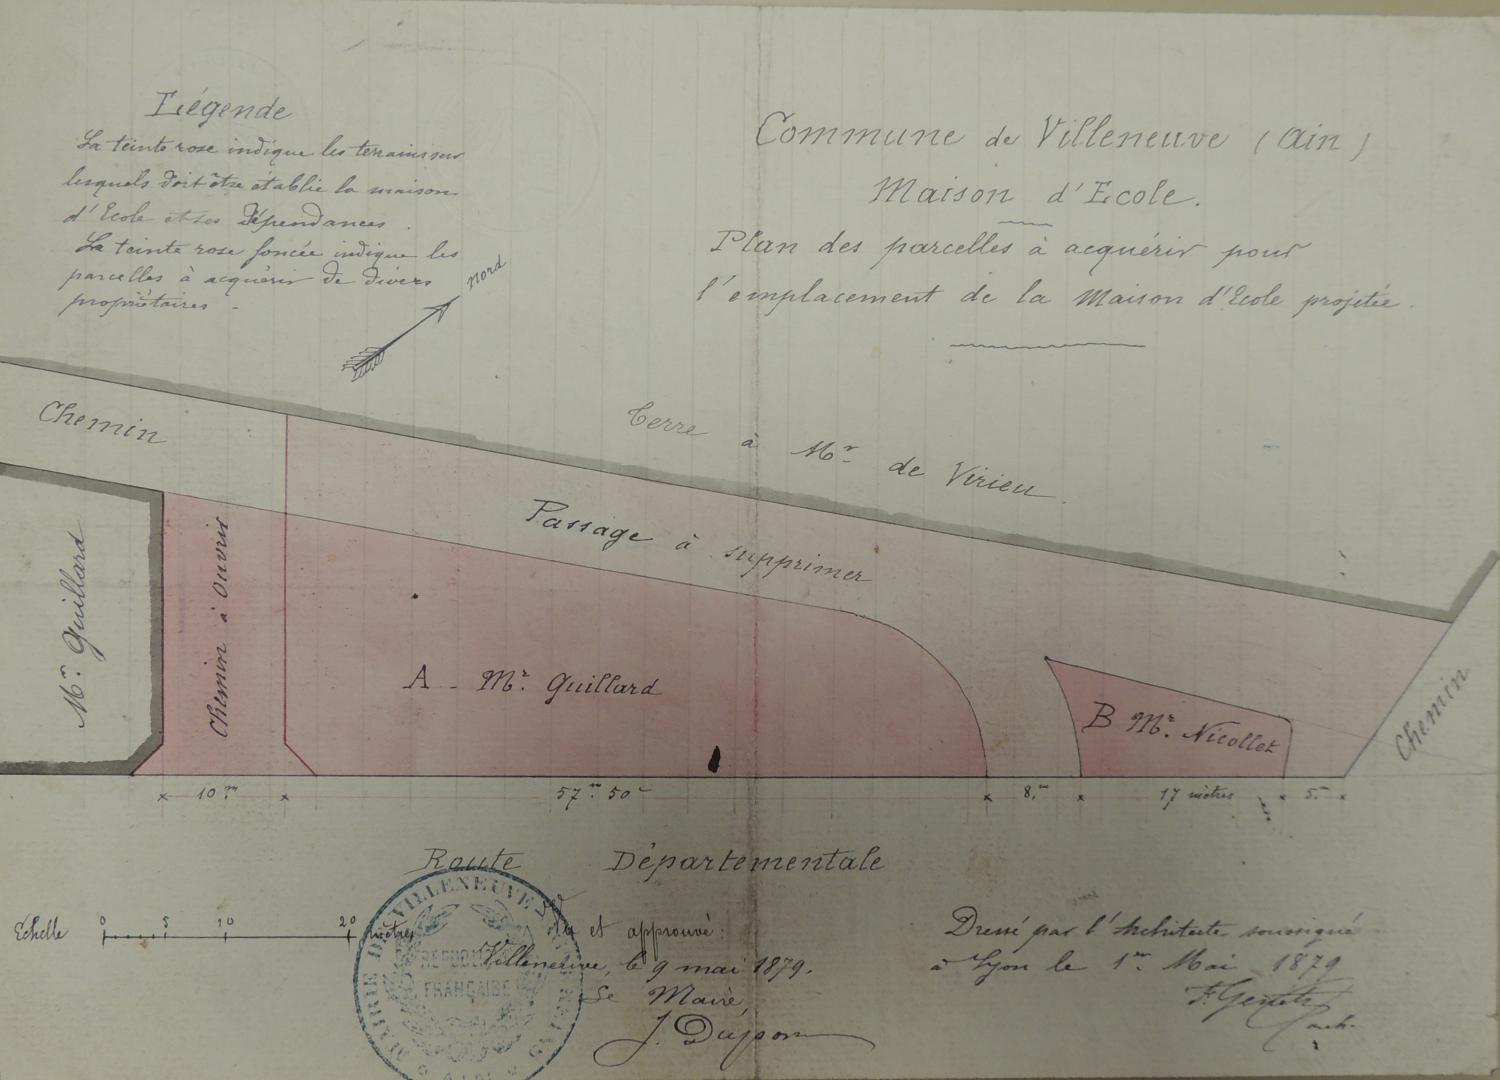 Légende
La teinte rose indique les terrains sur
lesquels doit être établie la maison
d'Ecole et ses Dépendances.
La teinte rose foncée indique les
parcelles à acquérir de divers
propriétaires -
Nord
Commune de Villeneuve (Ain)
Maison d'Ecole.
Plan des parcelles à acquérir pour
l'emplacement de la Maison d'Ecole projetée.
Chemin
Terre à Mr. de Virieu.
Passage à supprimer
Mr. Guillard
Chemin à Ouvrir
A - Mr. Guillard
B Mr. Nicollet
Chemin
10 m
57 m 50 c
8 m
17 mètres
5 m
Route Départementale
Echelle 0 5 10 20 mètres
MAIRIE DE VILLENEUVE
RÉPUBLIQUE
FRANÇAISE
Vu et approuvé:
Villeneuve, le 9 mai 1879.
Le Maire,
Dressé par l'Architecte soussigné
à Lyon le 1er Mai 1879